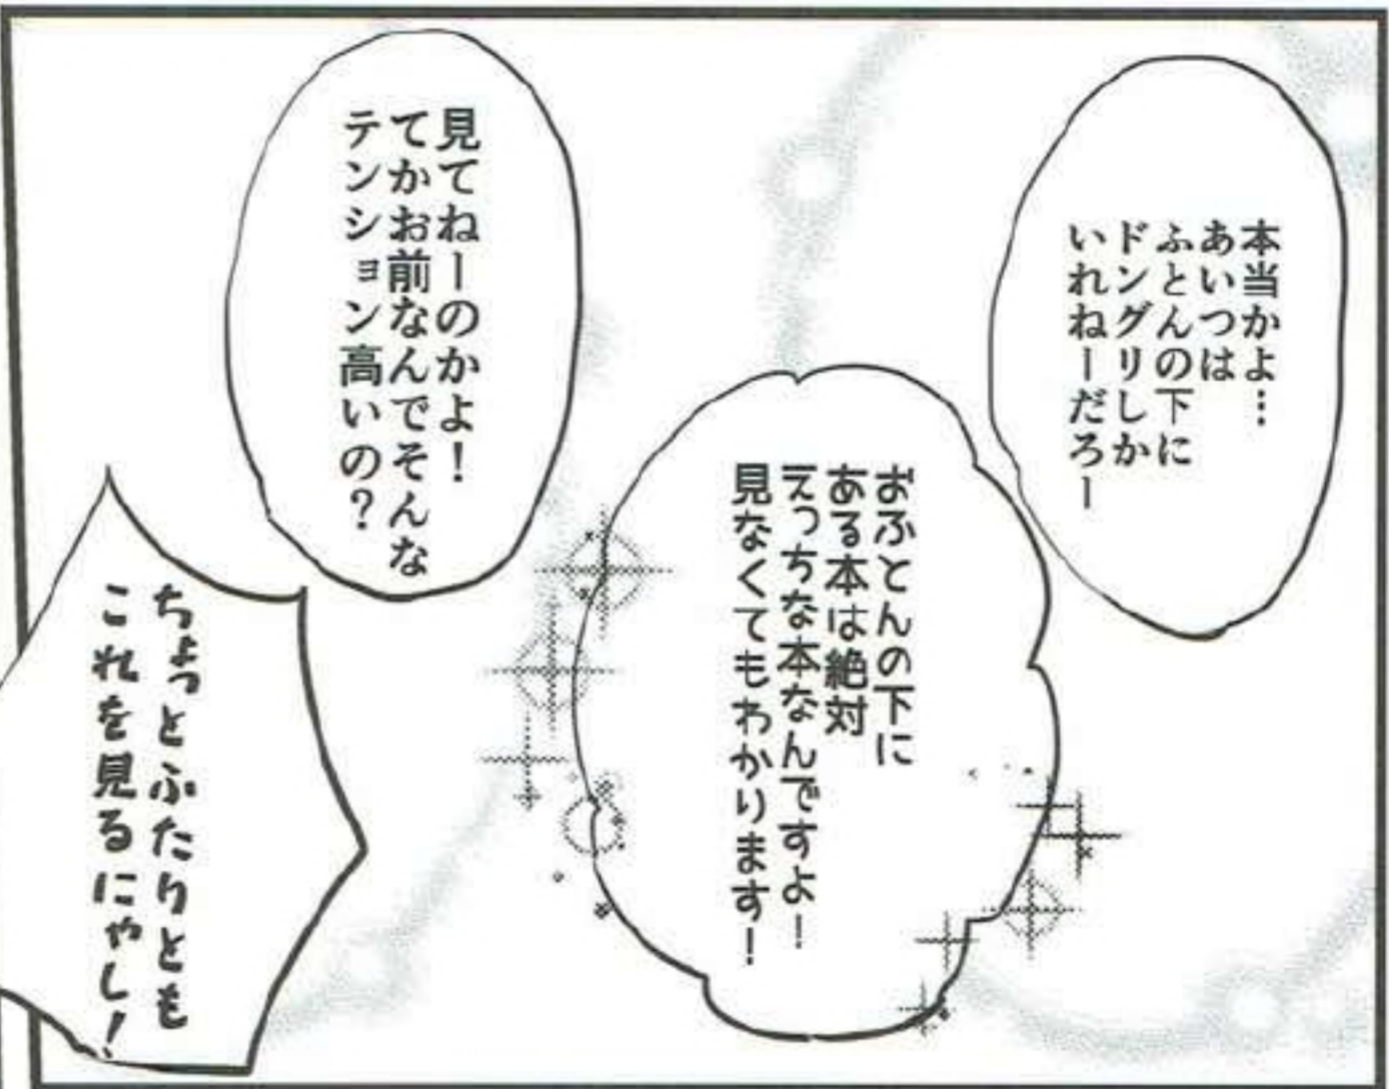 本当かよ…
あいつは
ふとんの下に
ドングリしか
いれねーだろー
おふとんの下に
ある本は絶対
えっちな本なんですよー！
見なくてもわかります！
見てねーのかよ！
てかお前なんでそんな
テンション高いの？
ちょっとふたりとも
これを見るにゃし！